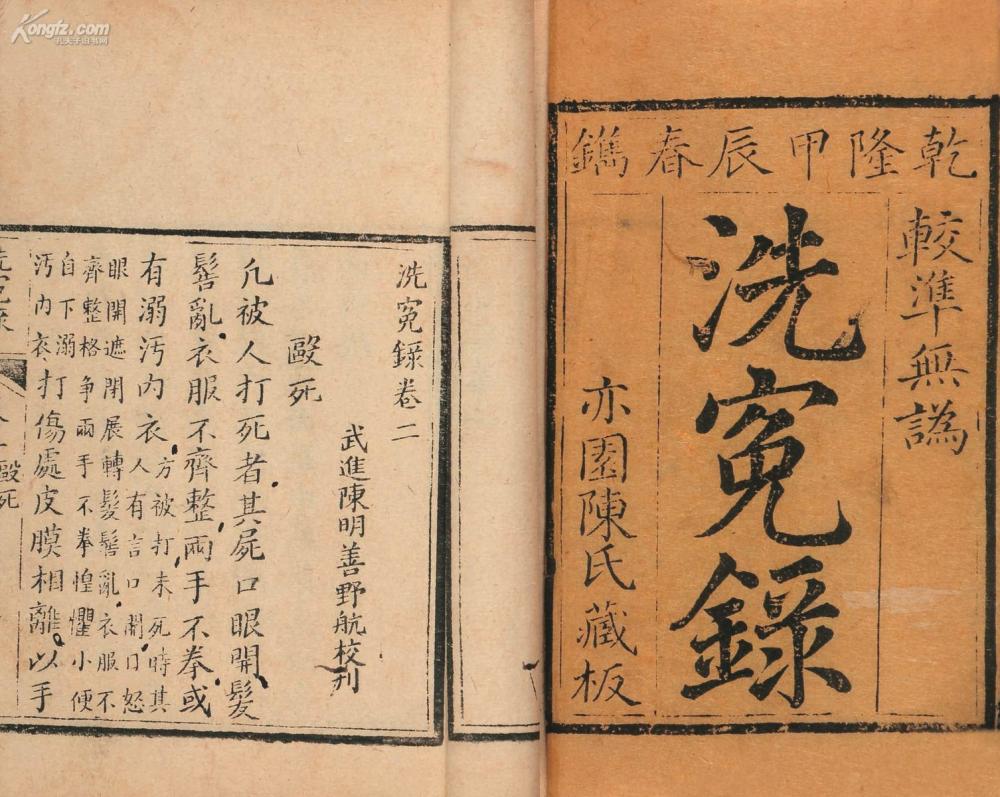 Kongfz.com
孔夫子旧书网
乾隆甲辰春鐫
較準無譌
洗寃錄
亦園陳氏藏板
洗寃錄卷二
武進陳明善野航校刋
毆死
凢被人打死者其屍口眼開髮
髻亂衣服不齊整兩手不拳或
有溺汚內衣方被打未死時其
人有言口開口怒
眼開遮閉展轉髮髻亂衣服不
齊整格争兩手不拳惶懼小便
自下溺
汚內衣打傷處皮膜相離以手
毆死